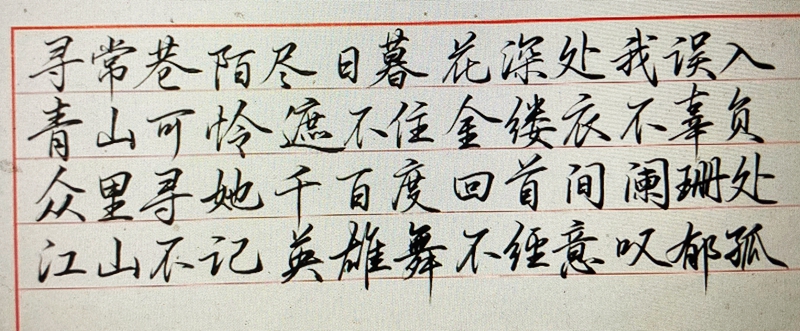 寻常巷陌尽日暮花深处我误入
青山可怜遮不住金缕衣不辜负
众里寻她千百度回首间阑珊处
江山不记英雄舞不经意叹郁孤